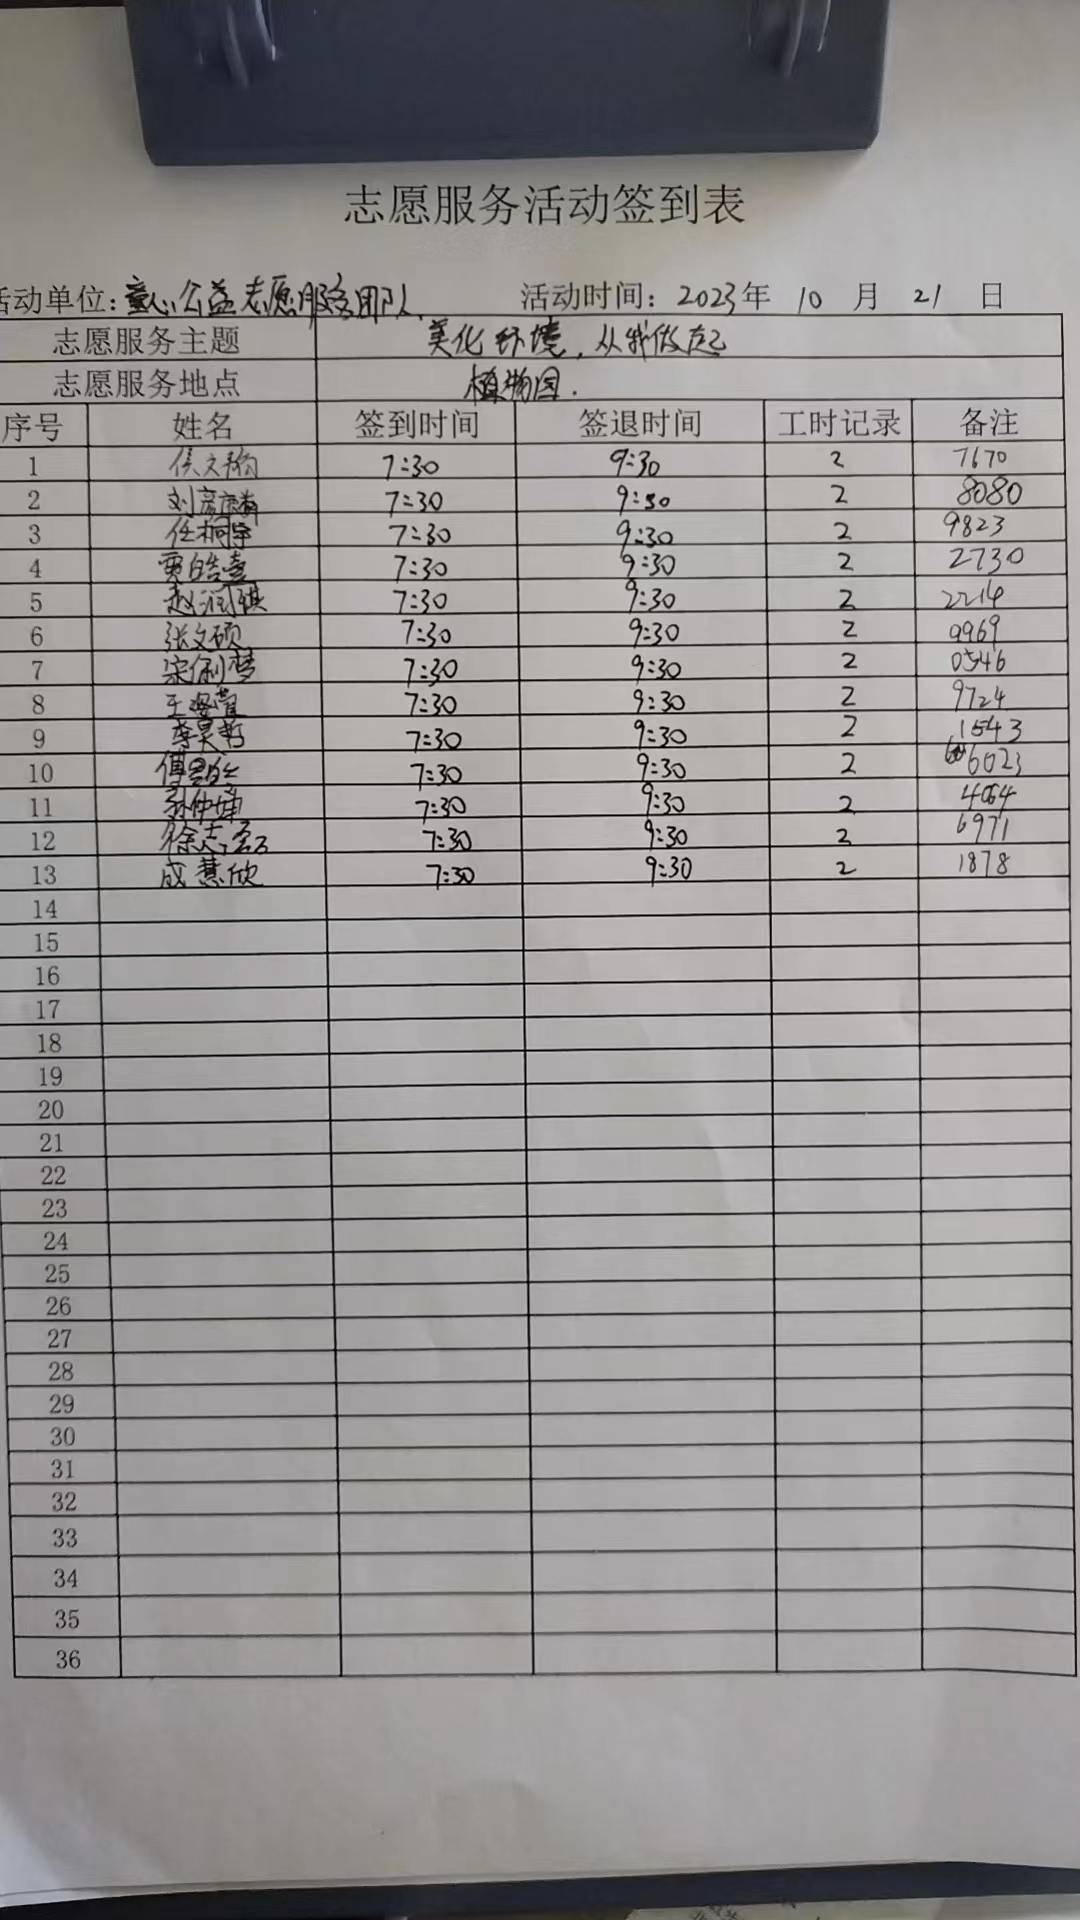 志愿服务活动签到表
活动单位:童心公益志愿服务团队 活动时间:2023年 10 月 21 日
志愿服务主题 美化环境,从我做起
志愿服务地点 植物园.
序号 姓名 签到时间 签退时间 工时记录 备注
1 侯文翔 7:30 9:30 2 7670
2 7:30 9:30 2 8080
3 任桐宇 7:30 9:30 2 9823
4 贾皓喜 7:30 9:30 2 2730
5 赵润祺 7:30 9:30 2 2214
6 张文硕 7:30 9:30 2 9969
7 宋俐梦 7:30 9:30 2 0546
8 7:30 9:30 2 9724
9 李昊哲 7:30 9:30 2 1543
10 7:30 9:30 2 6023
11 7:30 9:30 2 4064
12 徐志磊 7:30 9:30 2 6971
13 成慧欣 7:30 9:30 2 1878
14
15
16
17
18
19
20
21
22
23
24
25
26
27
28
29
30
31
32
33
34
35
36